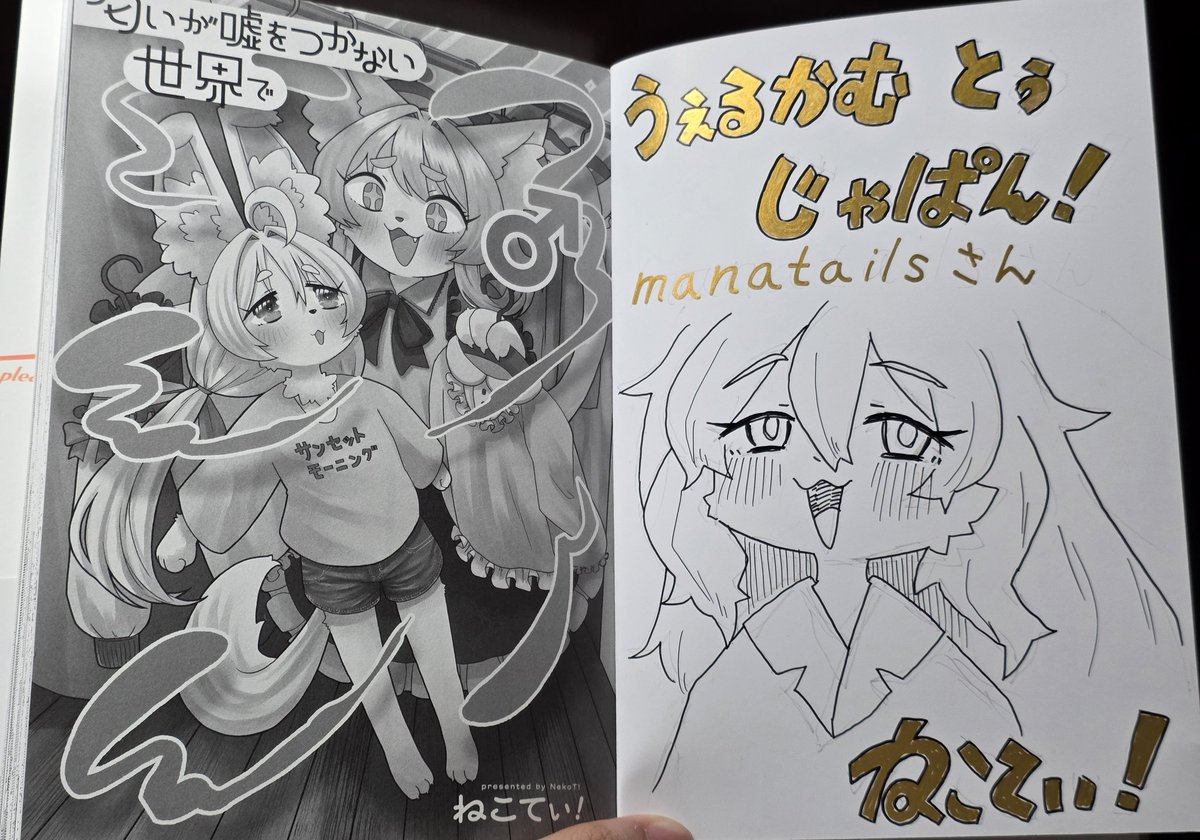 匂いが嘘をつかない
世界で
サンセット
モーニング
presented by NekoTi
ねこてぃ!
うぇるかむ とぅ
じゃぱん!
manatailsさん
ねこてぃ!